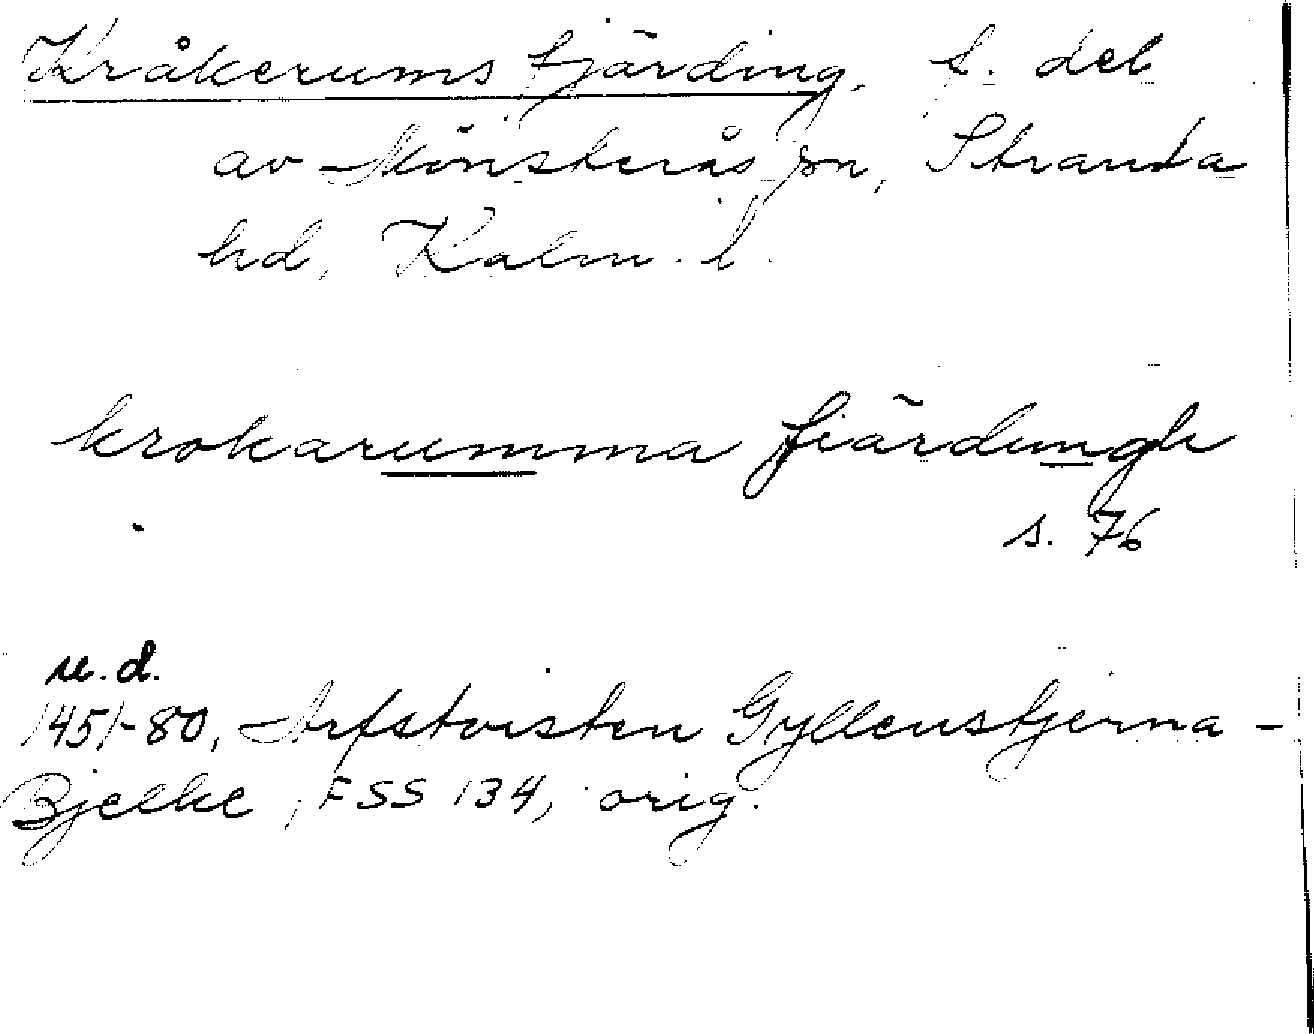 Kråkerums fjärding, f. del
av Mönsterås sn, Stranda
hd, Kalm. l.
krokarumma fiärdungh
s. 76
u.d.
1451-80, Arfstvisten Gyllenstjerna -
Bjelke, FSS 134, orig.